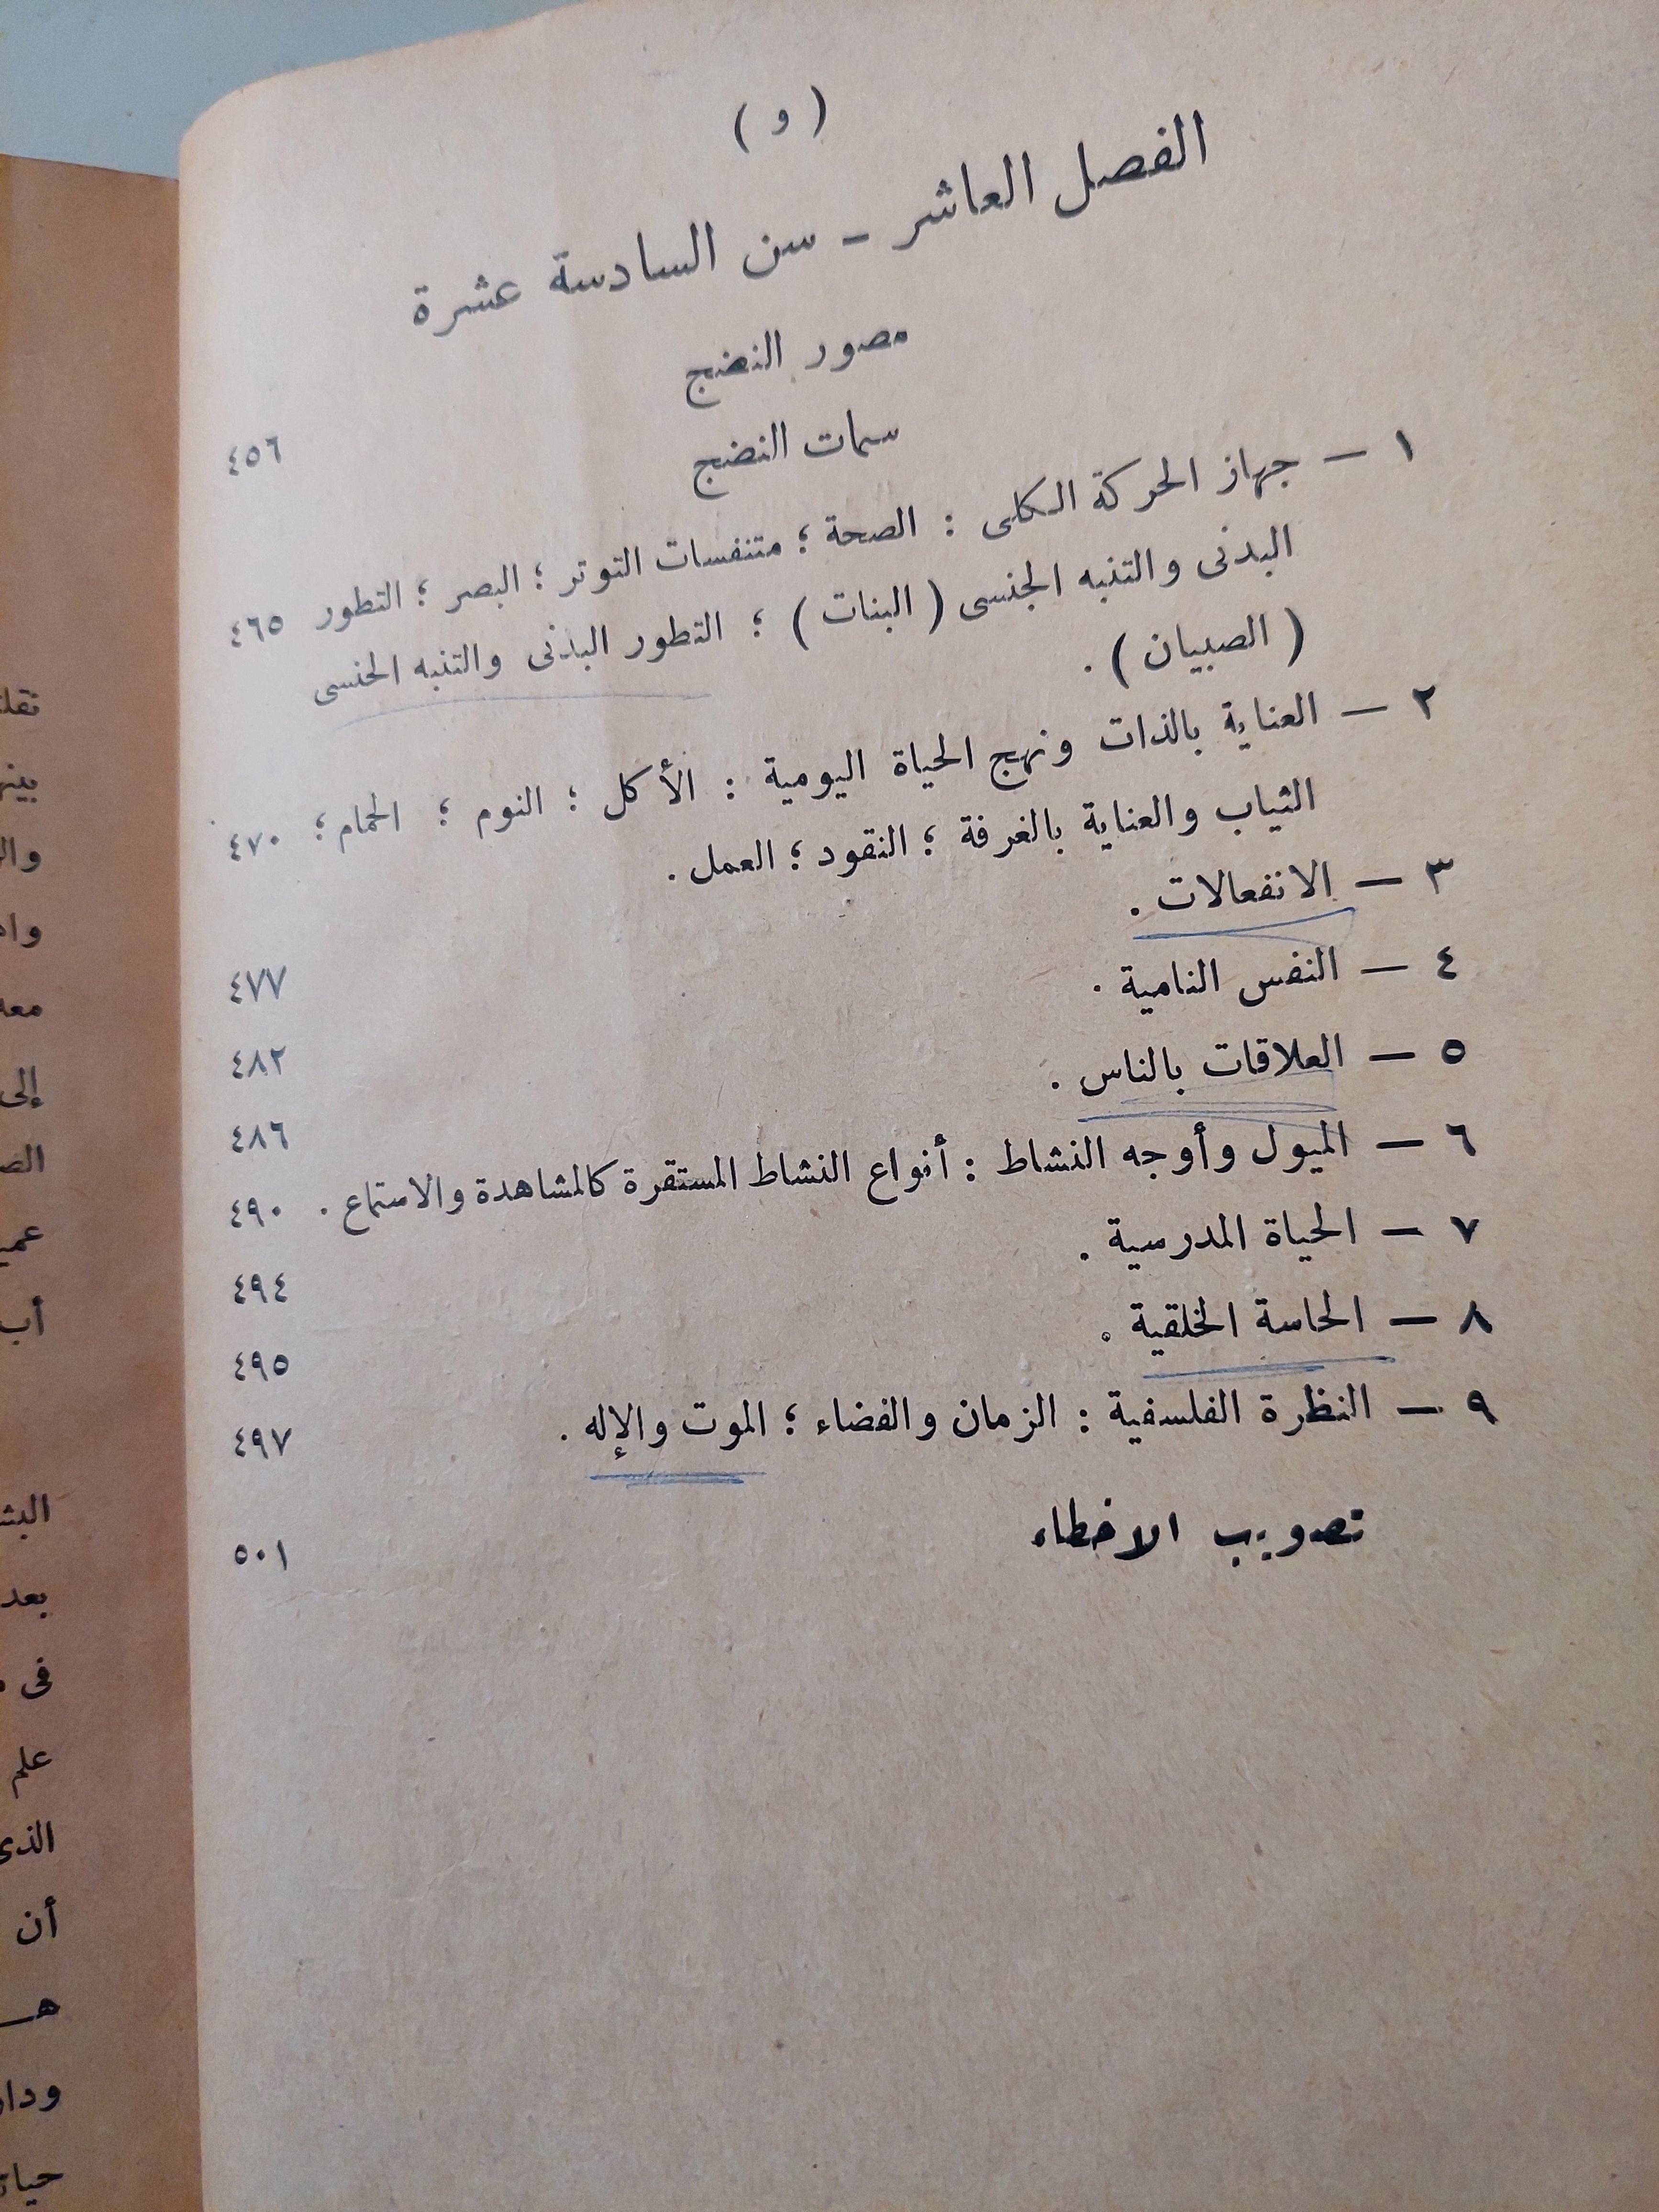 ( و )
الفصل العاشر - سن السادسة عشرة
مصور النضج
٤٥٦
سمات النضج
١ — جهاز الحركة الكلى : الصحة ؛ متنفسات التوتر ؛ البصر ؛ التطور ٤٦٥
البدنى والتنبه الجنسى ( البنات ) ؛ التطور البدنى والتنبه الجنسى
( الصبيان ) .
٢ — العناية بالذات ونهج الحياة اليومية : الأكل ؛ النوم ؛ الحمام ؛ ٤٧٠
الثياب والعناية بالغرفة ؛ النقود ؛ العمل .
٣ — الانفعالات . ٤٧٧
٤ — النفس النامية . ٤٨٢
٥ — العلاقات بالناس . ٤٨٦
٦ — الميول وأوجه النشاط : أنواع النشاط المستقرة كالمشاهدة والاستماع . ٤٩٠
٧ — الحياة المدرسية . ٤٩٤
٨ — الحاسة الخلقية . ٤٩٥
٩ — النظرة الفلسفية : الزمان والفضاء ؛ الموت والإله . ٤٩٧
تصويب الاخطاء ٥٠١
إلى
البش
بعد
فى
علم
الذى
أن